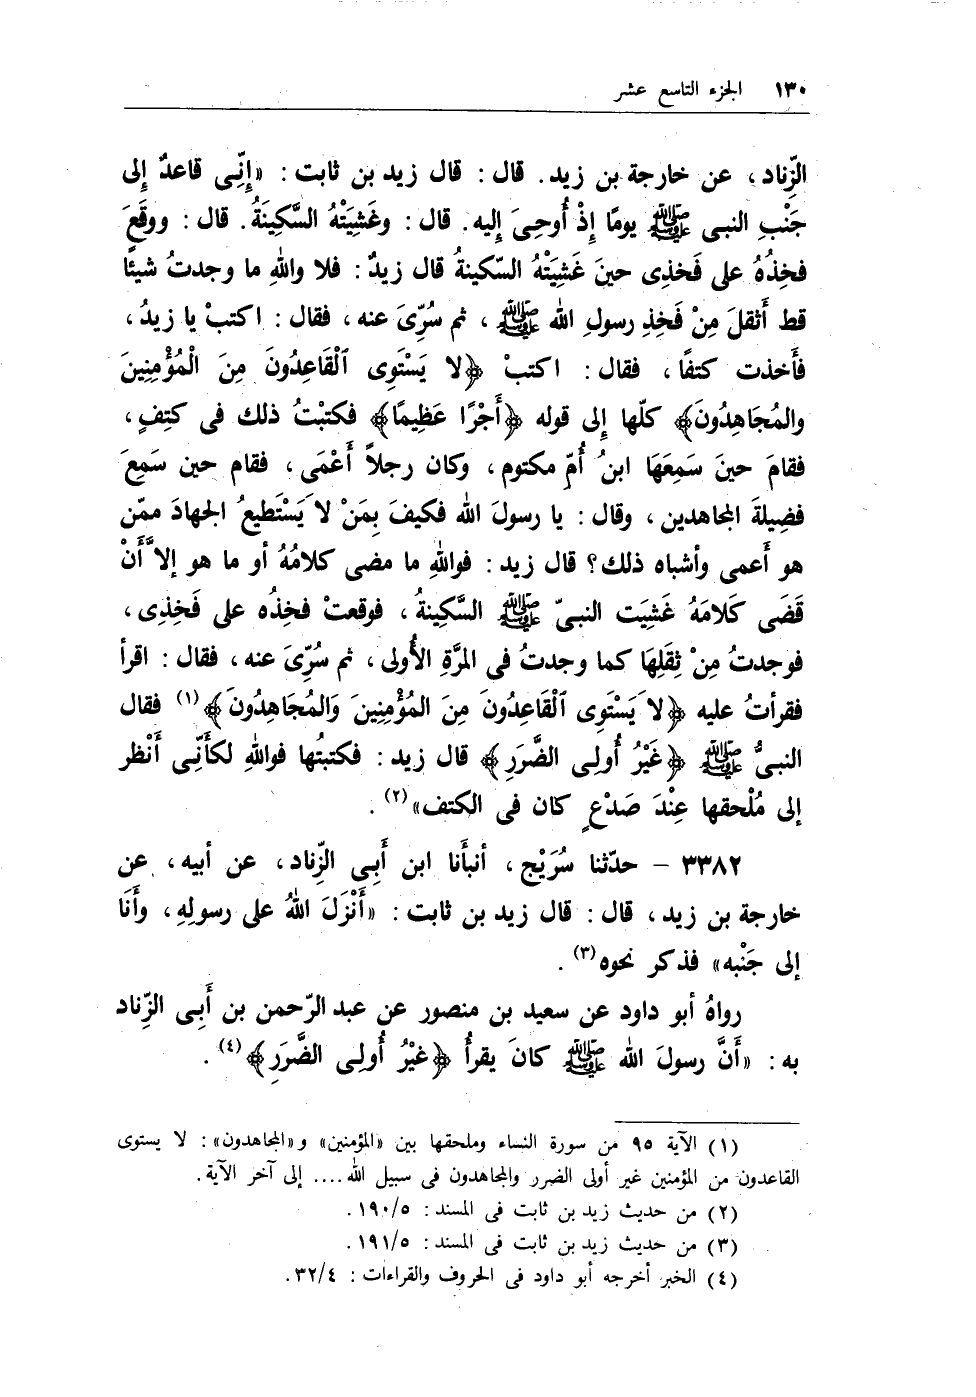 ١٣٠ الجزء التاسع عشر
الزِّناد، عن خارجة بن زيد. قال: قال زيد بن ثابت: «إنِّى قاعدٌ إلى
جَنْبِ النبى ﷺ يومًا إذْ أُوحِىَ إليه. قال: وغَشِيَتْهُ السَّكِينَةُ. قال: ووقَعَ
فخِذُهُ على فَخذِى حينَ غَشِيَتْهُ السّكينةُ قال زيدٌ: فلا واللهِ ما وجدتُ شيئًا
قط أَثقلَ مِنْ فَخِذِ رسولِ الله ﷺ، ثم سُرِّىَ عنه، فقال: اكتبْ يا زيدُ،
فأَخذت كتفًا، فقال: اكتبْ ﴿لا يَسْتَوِى ٱلْقَاعِدُونَ مِنَ الْمُؤْمِنِينَ
والمُجَاهِدُونَ﴾ كلّها إلى قوله ﴿أَجْرًا عَظِيمًا﴾ فكتبْتُ ذلك فى كتِفٍ،
فقامَ حينَ سَمِعَهَا ابنُ أُمّ مكتوم، وكان رجلاً أَعْمَى، فقام حين سَمِعَ
فضِيلةَ المجاهدين، وقال: يا رسولَ الله فكيفَ بِمَنْ لاَ يَسْتَطيعُ الجهادَ ممّن
هو أَعمى وأشباه ذلك؟ قال زيد: فواللهِ ما مضى كلامُهُ أو ما هو إلاَّ أَنْ
قَضَى كَلامَهُ غَشِيَت النبىّ ﷺ السَّكينةُ، فوقعتْ فخِذُه على فَخِذِى،
فوجدتُ مِنْ ثِقَلِهَا كما وجدتُ فى المرَّةِ الأُولى، ثم سُرِّىَ عنه، فقال: اقرأ
فقرأتُ عليه ﴿لاَ يَسْتَوِى ٱلْقَاعِدُونَ مِنَ المُؤْمِنِينَ وَالمُجَاهِدُونَ﴾(١) فقال
النبىُّ ﷺ ﴿غَيْرُ أُولِى الضَّرَرِ﴾ قال زيد: فكتبتُها فواللهِ لكأَنِّى أَنْظر
إلى مُلْحقها عِنْدَ صَدْعٍ كان فى الكتف»(٢).
٣٣٨٢ – حدّثنا سُرَيْج، أنبأنا ابن أَبِى الزِّناد، عن أبيه، عن
خارجة بن زيد، قال: قال زيد بن ثابت: «أَنْزَلَ اللهُ على رسولِهِ، وأَنَا
إلى جَنْبه» فذكر نحوه(٣).
رواهُ أبو داود عن سعيد بن منصور عن عبد الرّحمن بن أَبِى الزِّناد
به: «أَنَّ رسولَ الله ﷺ كانَ يقرأُ ﴿غيْرُ أُولِى الضَّرَرِ﴾(٤).
(١) الآية ٩٥ من سورة النساء وملحقها بين «المؤمنين» و«المجاهدون»: لا يستوى
القاعدون من المؤمنين غير أولى الضرر والمجاهدون فى سبيل الله.... إلى آخر الآية.
(٢) من حديث زيد بن ثابت فى المسند: ١٩٠/٥.
(٣) من حديث زيد بن ثابت فى المسند: ١٩١/٥.
(٤) الخبر أخرجه أبو داود فى الحروف والقراءات: ٣٢/٤.